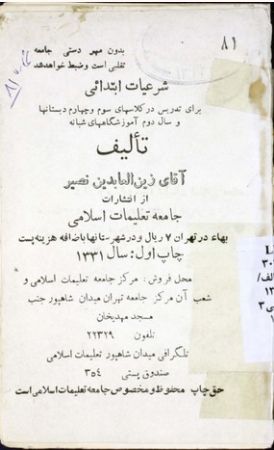 ۸۱
بدون مهر دستی جامعه
تقلبی است وضبط خواهدشد
۸۱۰
شرعیات ابتدائی
برای تدریس درکلاسهای سوم وچهارم دبستانها
و سال دوم آموزشگاههای شبانه
تألیف
آقای زین‌العابدین نصیر
از انتشارات
جامعه تعلیمات اسلامی
بهاء درتهران ۷ ریال ودرشهرستانهاباضافه هزینه پست
چاپ اول: سال ۱۳۳۱
محل فروش: مرکز جامعه تعلیمات اسلامی و
شعب آن مرکز جامعه تهران میدان شاهپور جنب
مسجد مهدیخان
تلفون ۲۲۳۲۹
تلگرافی میدان شاهپور تعلیمات اسلامی
صندوق پستی ۳۵۴
حق چاپ محفوظ و مخصوص جامعه تعلیمات اسلامی است